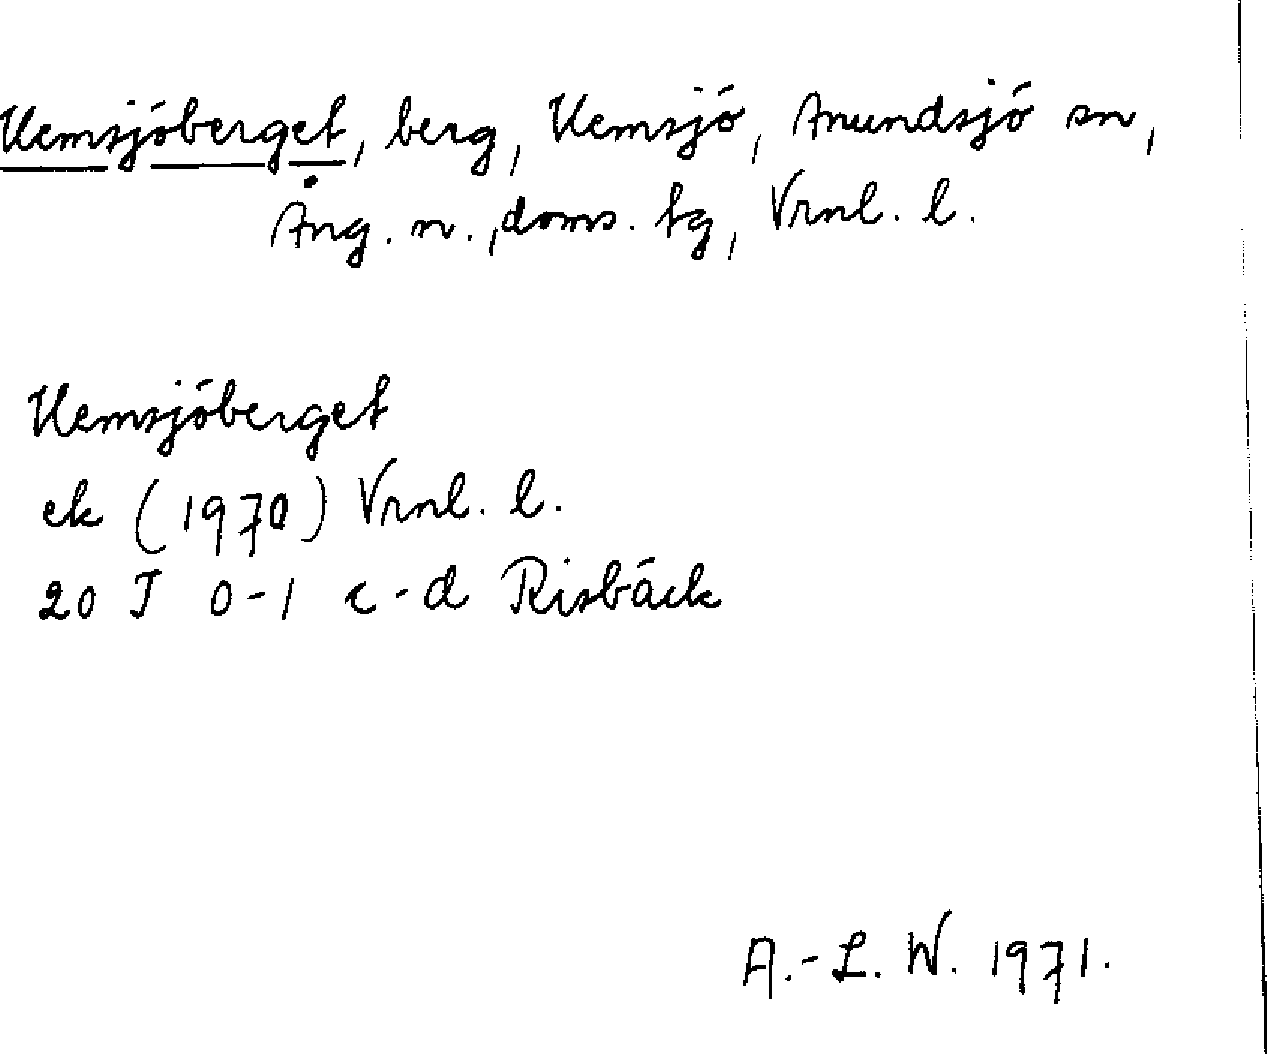 Hemsjöberget, berg, Hemsjö, Anundsjö sn,
Ång. n., doms. tg, Vrnl. l.
Hemsjöberget
ek (1970) Vrnl. l.
20 J 0-1 c-d Risbäck
A.-L. W. 1971.